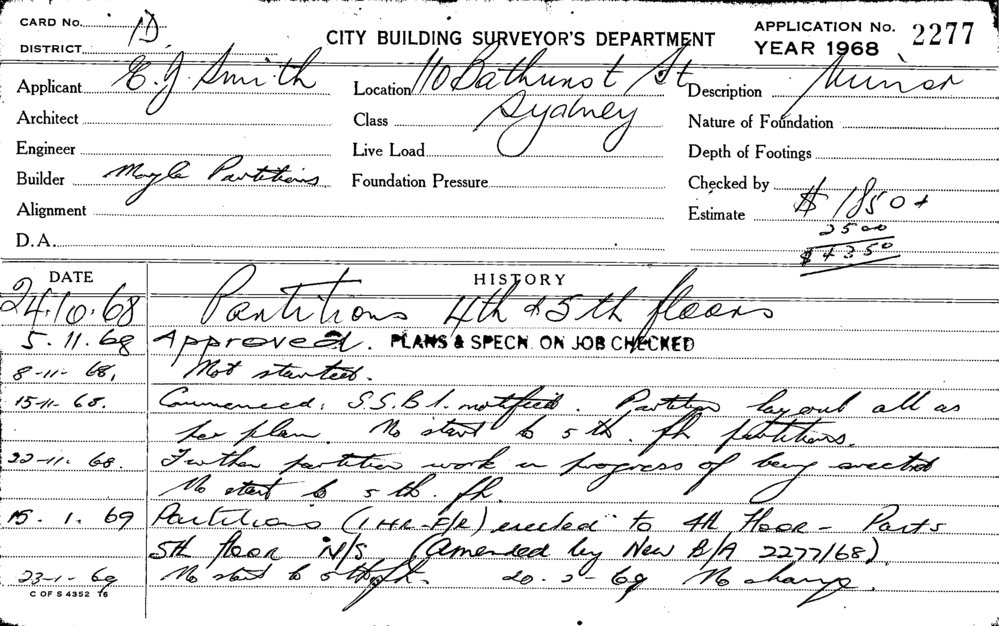 CARD No. 1D.
DISTRICT
CITY BUILDING SURVEYOR'S DEPARTMENT
APPLICATION No. 2277
YEAR 1968
Applicant E. J. Smith
Location 110 Bathurst St
Sydney
Description Minor
Architect
Class
Nature of Foundation
Engineer
Live Load
Depth of Footings
Builder Moyle Partitions
Foundation Pressure
Checked by
Alignment
Estimate $ 1850 +
2500
$ 4350
D.A.
DATE HISTORY
24.10.68 Partitions 4th & 5th floors
5.11.68 Approved. PLANS & SPECN. ON JOB CHECKED
8-11-68. Not started.
15-11-68. Commenced. S.S.B.I. notified. Partition layout all as
per plan. No start to 5th. flr partitions.
22-11-68. Further partition work in progress of being erected
No start to 5th. flr.
15.1.69 Partitions (1 HR-F/R) erected to 4th Floor - Parts
5th floor N/S. (Amended by New B/A 2277/68)
23-1-69 No start to 5th flr. 20-2-69 No change.
C OF S 4352 T6